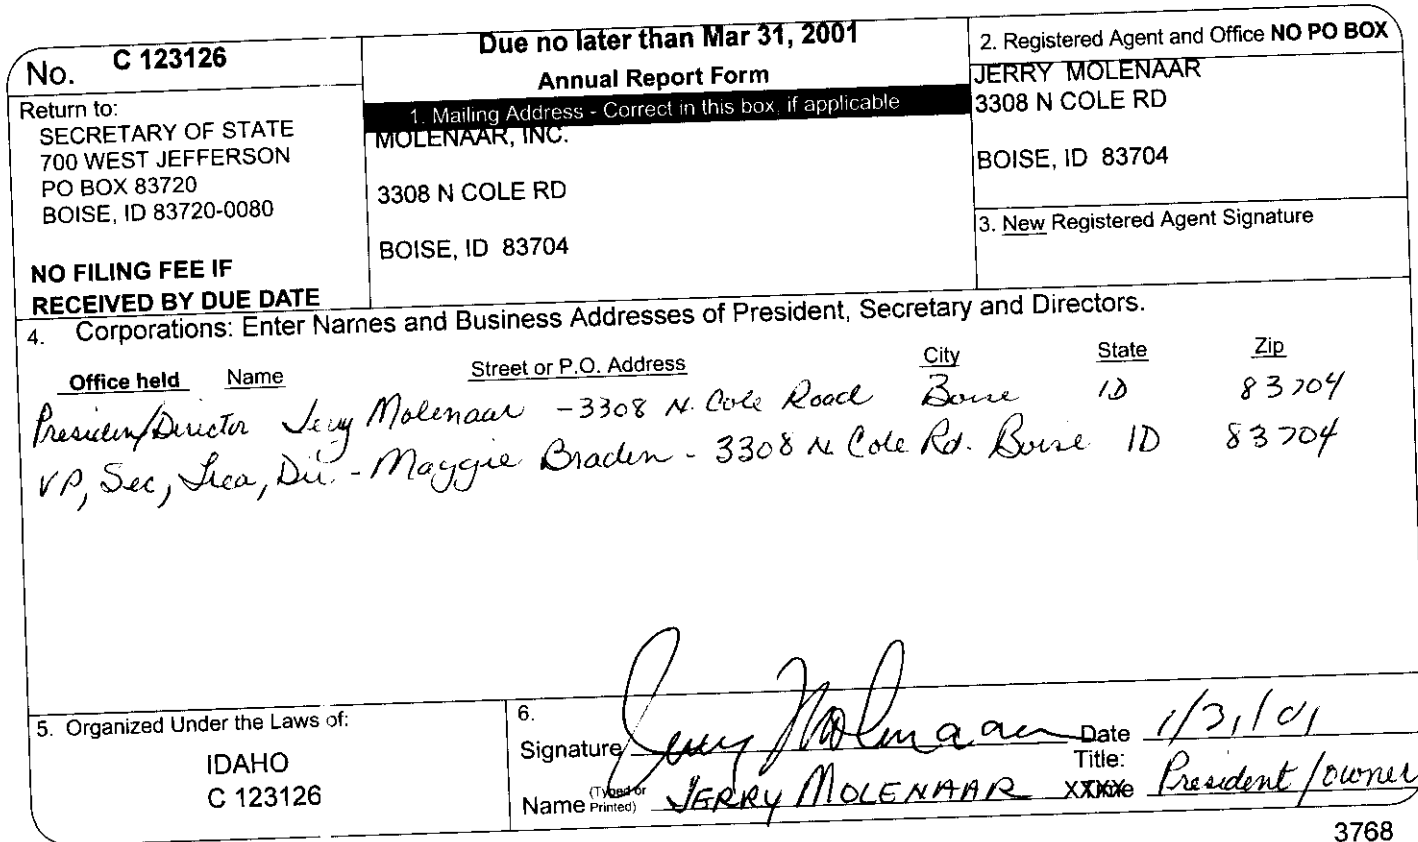 No. C 123126
Return to:
SECRETARY OF STATE
700 WEST JEFFERSON
PO BOX 83720
BOISE, ID 83720-0080
NO FILING FEE IF
RECEIVED BY DUE DATE
Due no later than Mar 31, 2001
Annual Report Form
1. Mailing Address - Correct in this box, if applicable
MOLENAAR, INC.
3308 N COLE RD
BOISE, ID 83704
2. Registered Agent and Office NO PO BOX
JERRY MOLENAAR
3308 N COLE RD
BOISE, ID 83704
3. New Registered Agent Signature
4. Corporations: Enter Names and Business Addresses of President, Secretary and Directors.
Office held Name Street or P.O. Address City State Zip
President/Director Jerry Molenaar - 3308 N. Cole Road Boise ID 83704
VP, Sec, Trea, Dir. - Maggie Braden - 3308 N Cole Rd. Boise ID 83704
5. Organized Under the Laws of:
IDAHO
C 123126
6.
Signature Jerry Molenaar Date 1/31/01
Title:
Name (Typed or Printed) JERRY MOLENAAR President/owner
3768